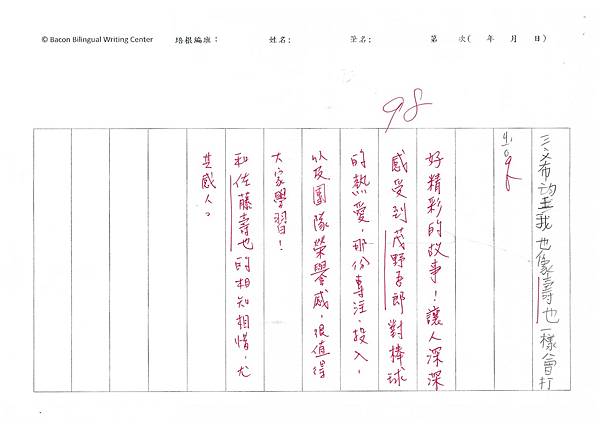 © Bacon Bilingual Writing Center 培根編班： 姓名： 筆名： 第 次( 年 月 日)
98
三、希望我也像壽也一樣會打
好精彩的故事！讓人深深
感受到茂野吾郎對棒球
的熱愛，那份專注、投入，
以及團隊榮譽感，很值得
大家學習！
和佐藤壽也的相知相惜，尤
其感人。